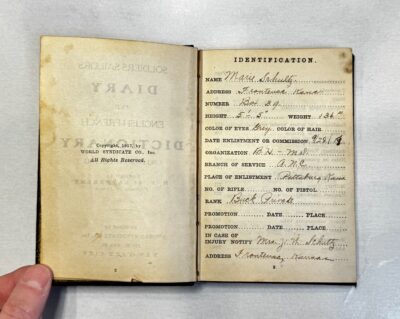 Copyright, 1917, by
WORLD SYNDICATE CO., Inc.
All Rights Reserved.
2
IDENTIFICATION.
NAME Marie Schultz
ADDRESS Frontenac Kans
NUMBER Box 39.
HEIGHT 5' - 5" WEIGHT 136
COLOR OF EYES Grey. COLOR OF HAIR
DATE ENLISTMENT OR COMMISSION
ORGANIZATION
BRANCH OF SERVICE
PLACE OF ENLISTMENT Pittsburg Kans
NO. OF RIFLE NO. OF PISTOL
RANK Buck Private
PROMOTION DATE PLACE
PROMOTION DATE PLACE
IN CASE OF
INJURY NOTIFY Mrs. J. H. Schultz
ADDRESS Frontenac, Kansas
3